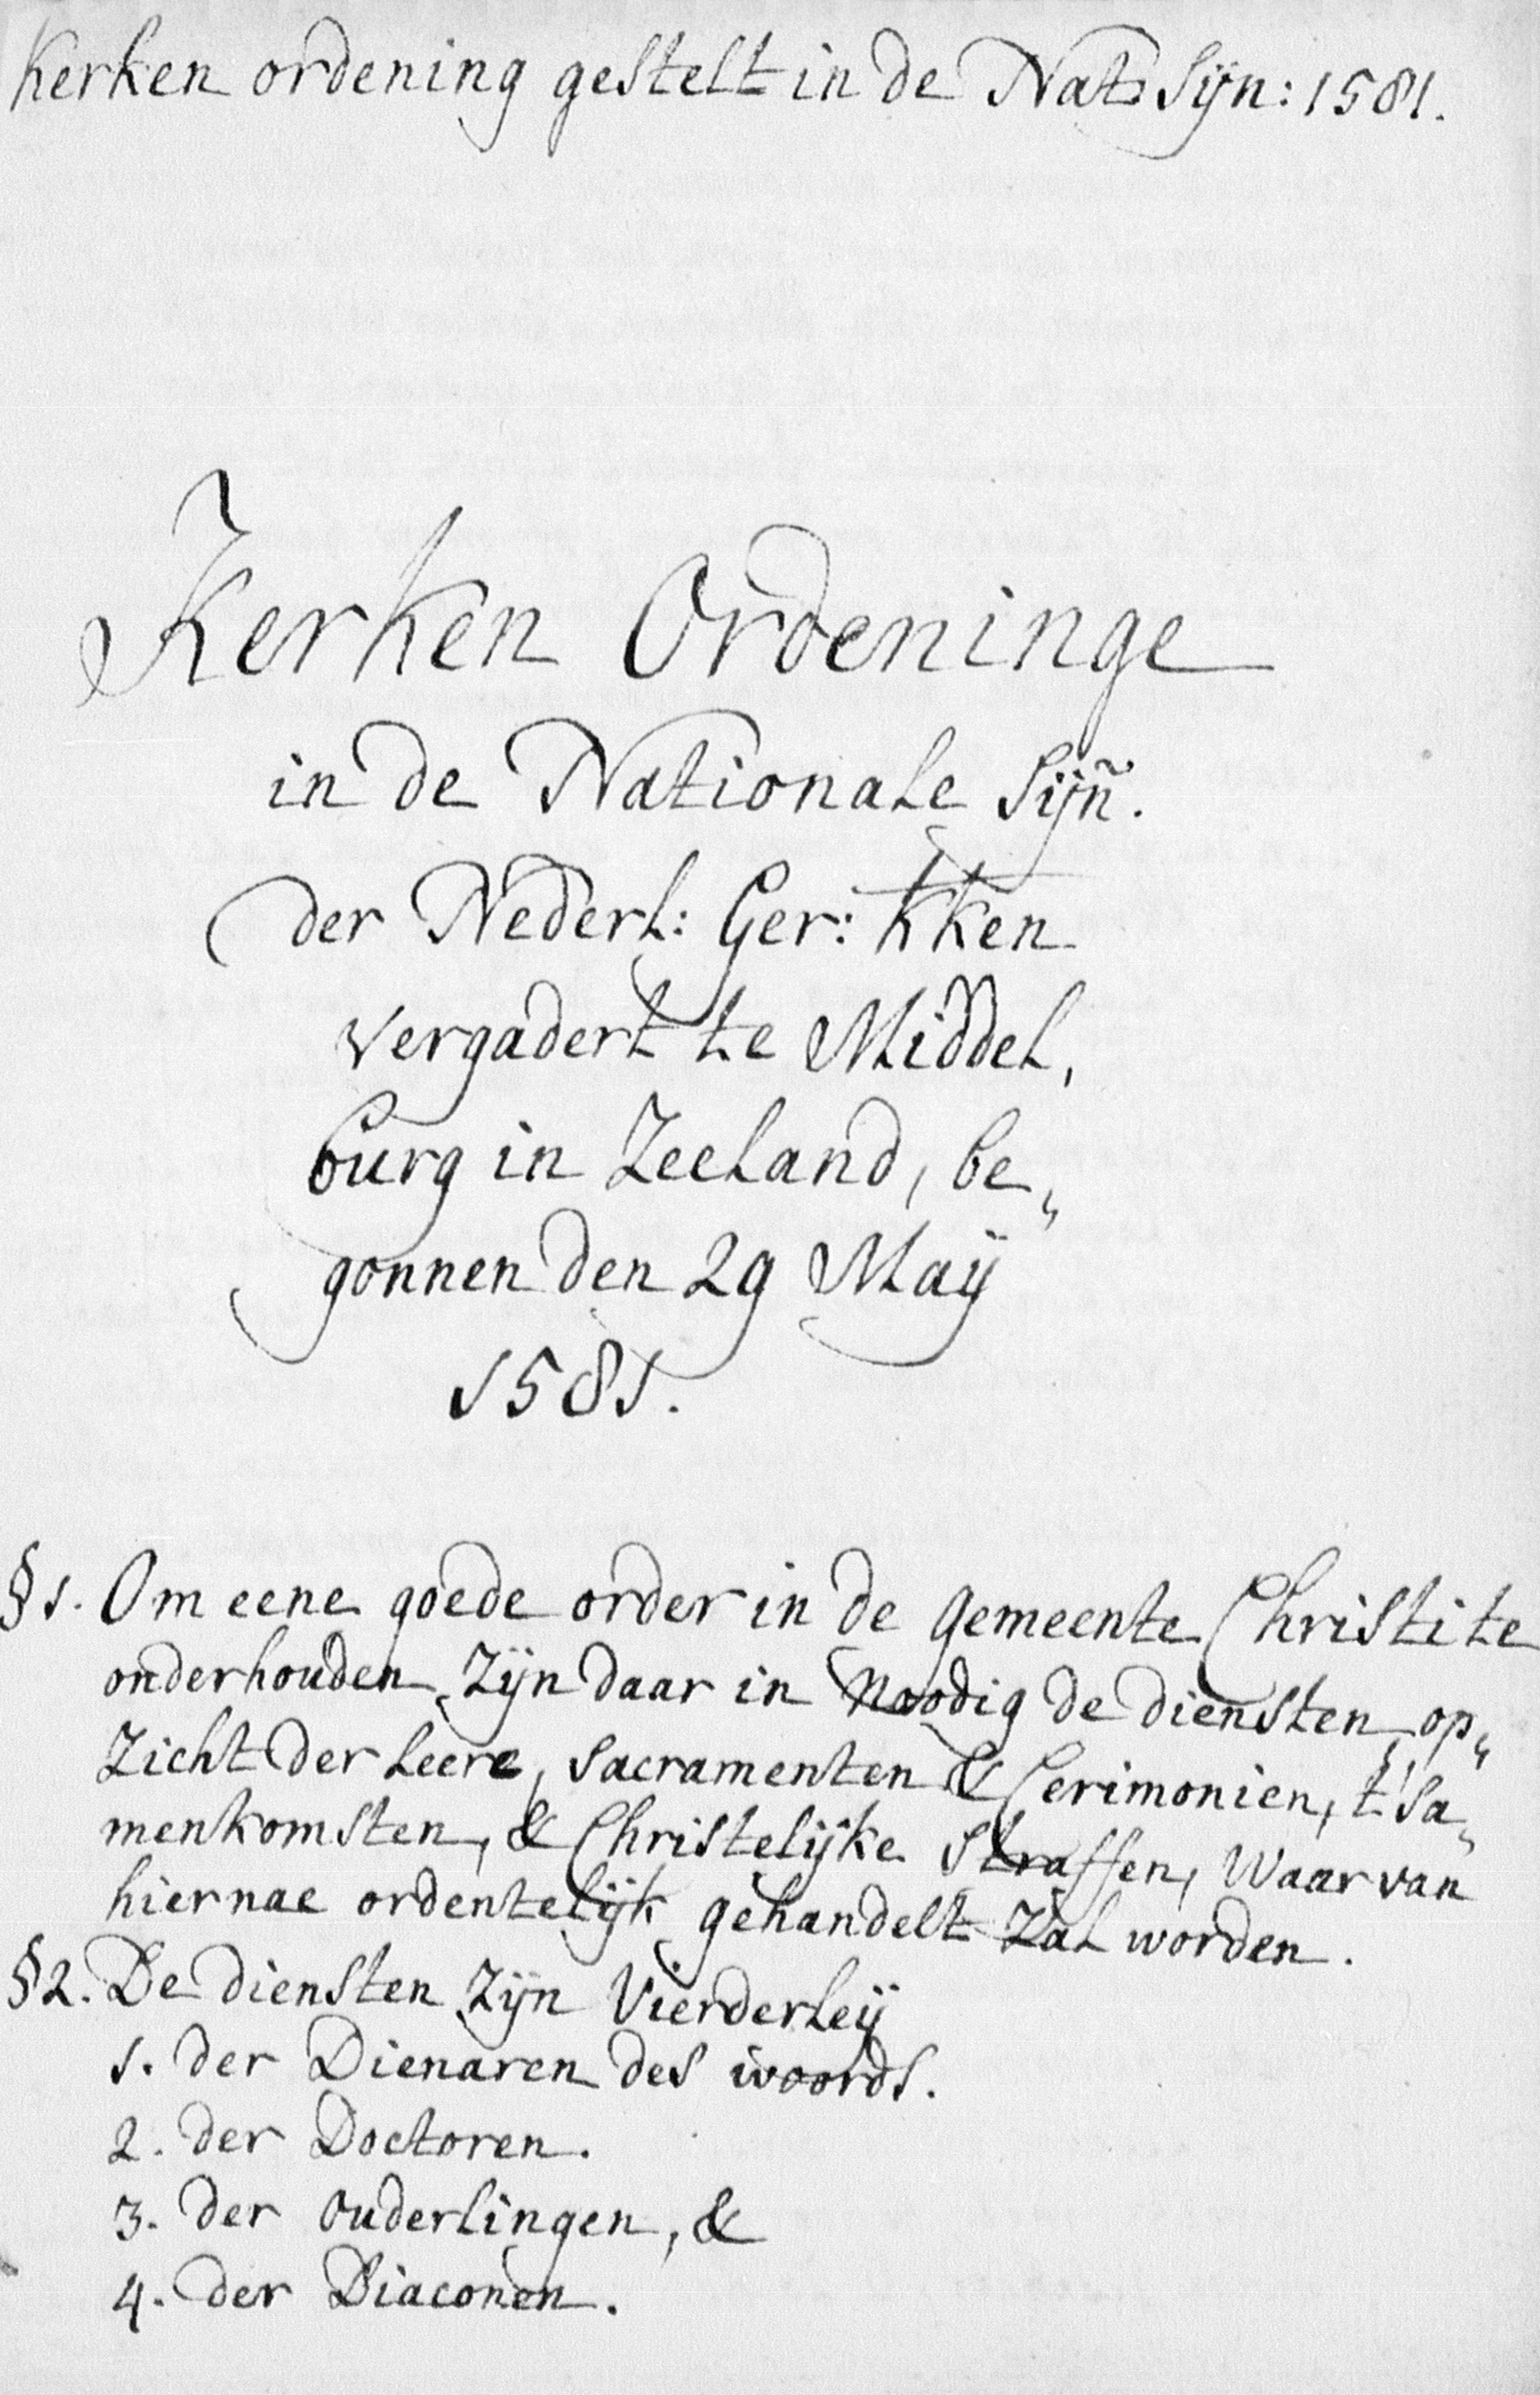 Kerken ordening gestelt in de Nat: Sijn: 1581.
Kerken Ordeninge
in de Nationale Sijñ.
der Nederl: Ger: KKen
vergadert te Middel,
burg in Zeeland, be„
gonnen den 29 Maÿ
1581.
§1. Om eene goede order in de gemeente Christi te
onderhouden Zijn daar in Noodig de diensten, op„
Zicht der Leere, Sacramenten & Cerimonien, t'Sa„
menkomsten, & Christelijke Straffen, Waar van
hiernae ordentelijk gehandelt Zal worden.
§2. De diensten Zijn Vierderleÿ
1. der Dienaren des woords.
2. der Doctoren.
3. der Ouderlingen, &
4. der Diaconen.